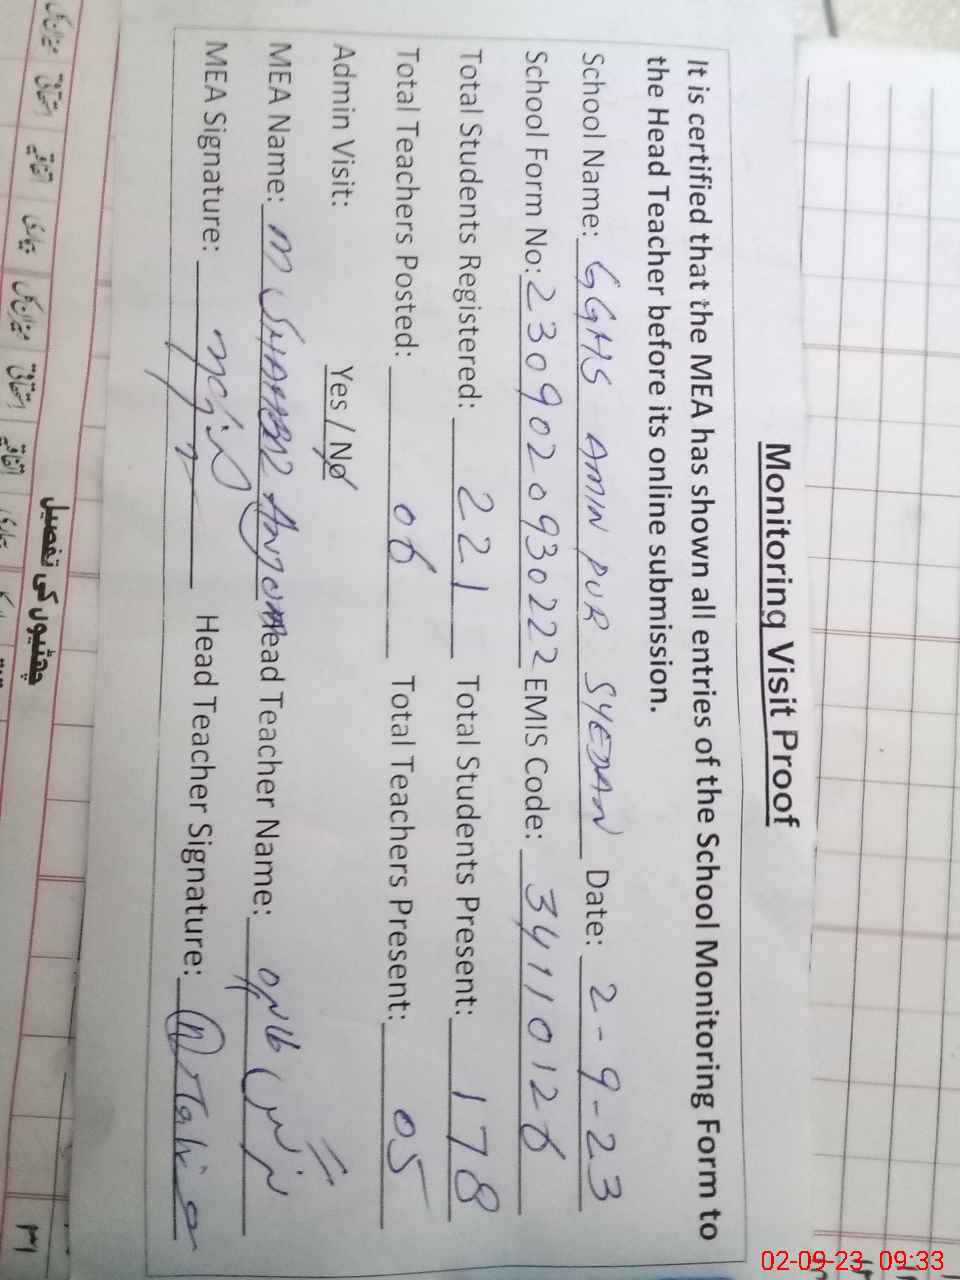 Monitoring Visit Proof
It is certified that the MEA has shown all entries of the School Monitoring Form to
the Head Teacher before its online submission.
School Name: GGHS AMIN PUR SYEDAN Date: 2-9-23
School Form No: 2309020930222 EMIS Code: 34110126
Total Students Registered: 221 Total Students Present: 178
Total Teachers Posted: 06 Total Teachers Present: 05
Admin Visit: Yes / No
MEA Name: M Head Teacher Name:
MEA Signature: Head Teacher Signature:
چھٹیوں کی تفصیل
میزان کل استحقاقی اتفاقیہ بیماری میزان کل استحقاقی اتفاقیہ بیماری
۳۱
02-09-23 09:33